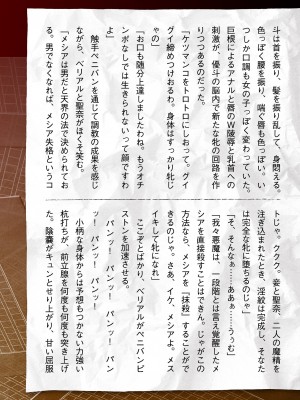 斗は首を振り、髪を振り乱して、身悶える。
色っぽく腰を振り、喘ぐ唇も色っぽい。い
つしか口調も女の子っぽく変わっていた。
巨根によるアナルと唇のW陵辱と乳首への
刺激が、優斗の脳内で新たな牝の回路を作
りつつあるのだった。
「ケツマンコをトロトロにしおって。グイ
グイ締めつけおるわ。身体はすっかり牝じ
ゃの」
「お口も随分上達しましたわね。もうオチ
ンポなしでは生きられないって顔ですわ
よ」
　触手ペニバンを通じて調教の成果を感じ
ながら、ベリアルと聖奈がほくそ笑む。
「メシアは男だと天界の法で決められてお
る。男でなくなれば、メシア失格というコ
トじゃ。ククク。妾と聖奈、二人の魔精を
注ぎ込まれたとき、淫紋は完成し、そなた
は完全な牝に堕ちるのじゃ」
「そ、そんなぁ……あああぁ……ううむ」
「我々悪魔は、一段階とは言え覚醒したメ
シアを直接殺すことはできん。じゃがこの
方法なら、メシアを『抹殺』することがで
きるのじゃ。さあ、イケ、メシアよ。メス
イキして牝になれ」
　ここぞとばかり、ベリアルがペニバンピ
ストンを加速させる。
　パンッ！　パンッ！　パンッ！　パン
ッ！　パンッ！　パンッ！
　小柄な身体からは予想もつかない力強い
杭打ちが、前立腺を何度も何度も突き上げ
た。陰嚢がキュンとせり上がり、甘い屈服